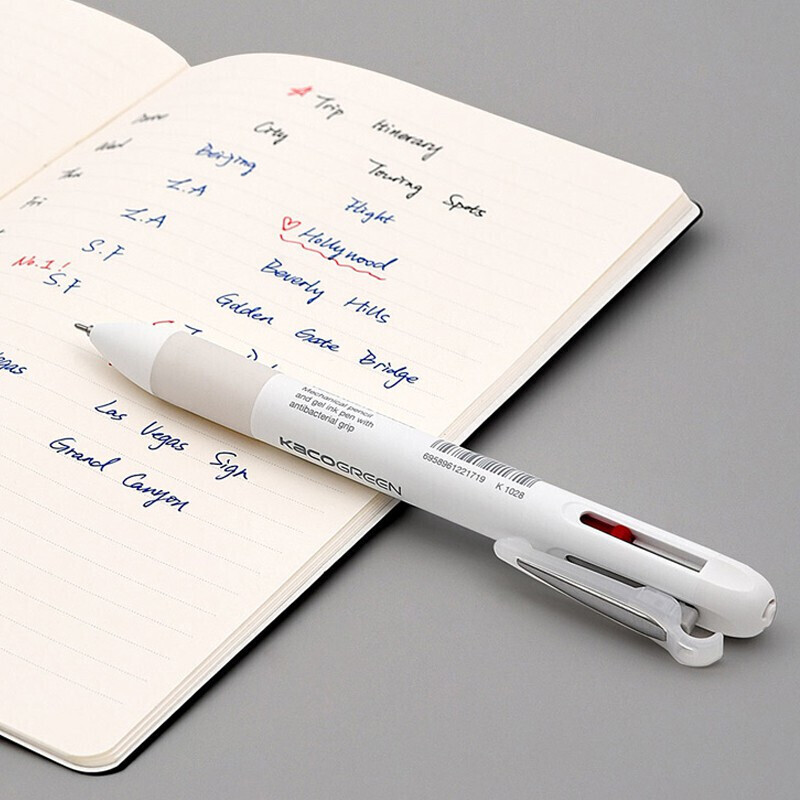 Trip Itinerary
City Touring Spots
Wed Beijing Flight
Thu L.A ♡ Hollywood
Fri L.A Beverly Hills
S.F Golden Gate Bridge
No.1! S.F
Vegas Las Vegas Sign
Grand Canyon
Mechanical pencil
and gel ink pen with
antibacterial grip
KACOGREEN
6958961221719 K1028